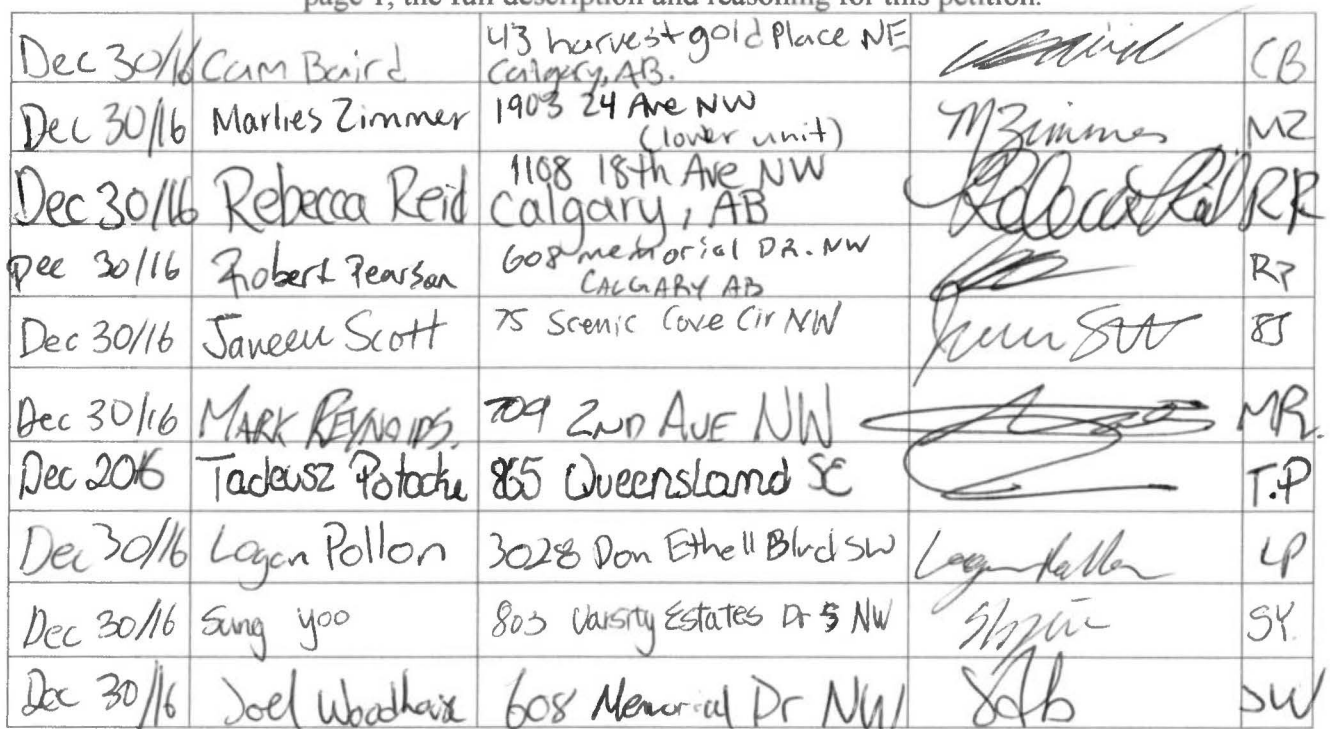 page 1, the full description and reasoning for this petition.
Dec 30/16 Cam Baird 43 harvest gold Place NE Calgary, AB. CB
Dec 30/16 Marlies Zimmer 1903 24 Ave NW (lower unit) MZimmer MZ
Dec 30/16 Rebecca Reid 1108 18th Ave NW Calgary, AB Rebecca Reid RR
Dec 30/16 Robert Pearson 608 memorial DR. NW CALGARY AB RP
Dec 30/16 Janeen Scott 75 Scenic Cove Cir NW
Dec 30/16 MARK REYNOLDS. 709 2ND AVE NW MR.
Dec 2016 Tadeusz 865 Queensland SE T.P
Dec 30/16 Logan Pollon 3028 Don Ethell Blvd SW Logan Pollon LP
Dec 30/16 Sung yoo 803 Varsity Estates Dr NW SY.
Dec 30/16 Joel Woodhouse 608 Memorial Dr NW JW